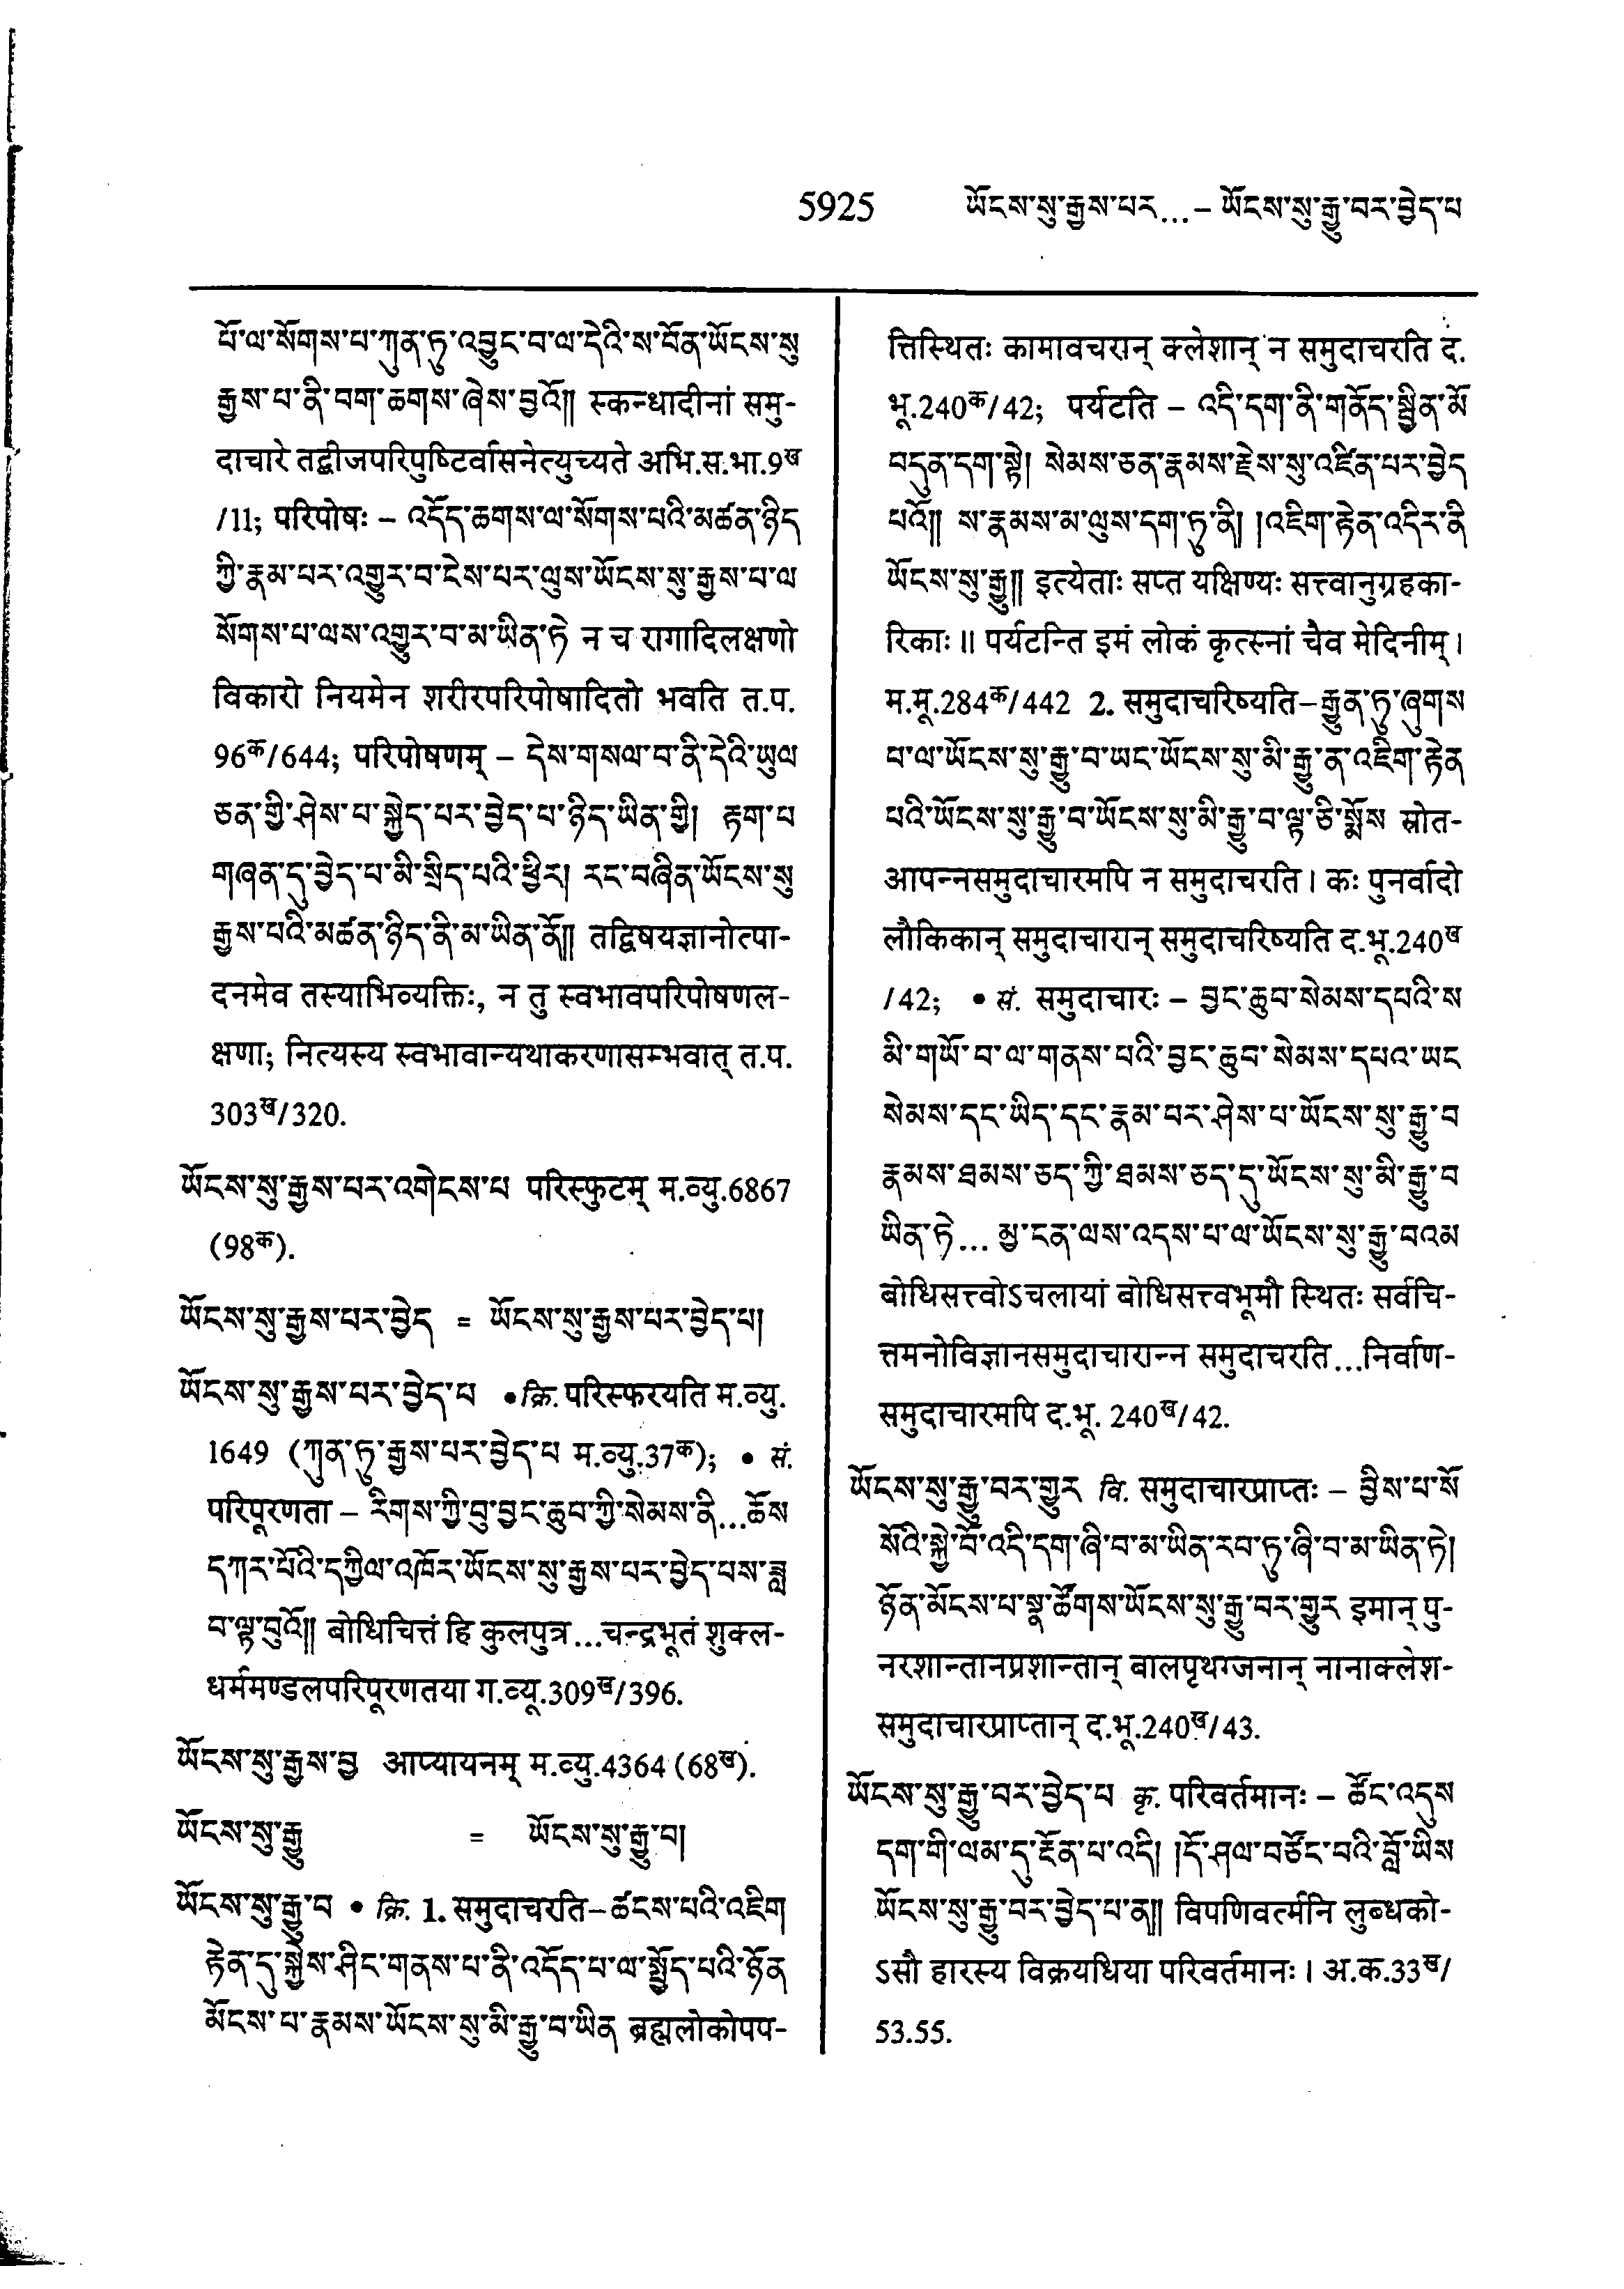 5925 ཡོངས་སུ་རྒྱས་པར...– ཡོངས་སུ་རྒྱུ་བར་བྱེད་པ
པོ་ལ་སོགས་པ་ཀུན་ཏུ་འབྱུང་བ་ལ་དེའི་ས་བོན་ཡོངས་སུ
རྒྱས་པ་ནི་བག་ཆགས་ཞེས་བྱའོ།། स्कन्धादीनां समु-
दाचारे तद्बीजपरिपुष्टिर्वासनेत्युच्यते अभि.स.भा.9ख
/11; परिपोषः – འདོད་ཆགས་ལ་སོགས་པའི་མཚན་ཉིད
ཀྱི་རྣམ་པར་འགྱུར་བ་ངེས་པར་ལུས་ཡོངས་སུ་རྒྱས་པ་ལ
སོགས་པ་ལས་འགྱུར་བ་མ་ཡིན་ཏེ न च रागादिलक्षणो
विकारो नियमेन शरीरपरिपोषादितो भवति त.प.
96क/644; परिपोषणम् – དེས་གསལ་བ་ནི་དེའི་ཡུལ
ཅན་གྱི་ཤེས་པ་སྐྱེད་པར་བྱེད་པ་ཉིད་ཡིན་གྱི། རྟག་པ
གཞན་དུ་བྱེད་པ་མི་སྲིད་པའི་ཕྱིར། རང་བཞིན་ཡོངས་སུ
རྒྱས་པའི་མཚན་ཉིད་ནི་མ་ཡིན་ནོ།། तद्विषयज्ञानोत्पा-
दनमेव तस्याभिव्यक्तिः, न तु स्वभावपरिपोषणल-
क्षणा; नित्यस्य स्वभावान्यथाकरणासम्भवात् त.प.
303ख/320.
ཡོངས་སུ་རྒྱས་པར་འགེངས་པ परिस्फुटम् म.व्यु.6867
(98क).
ཡོངས་སུ་རྒྱས་པར་བྱེད = ཡོངས་སུ་རྒྱས་པར་བྱེད་པ།
ཡོངས་སུ་རྒྱས་པར་བྱེད་པ •क्रि. परिस्फरयति म.व्यु.
1649 (ཀུན་ཏུ་རྒྱས་པར་བྱེད་པ म.व्यु.37क); • सं.
परिपूरणता – རིགས་ཀྱི་བུ་བྱང་ཆུབ་ཀྱི་སེམས་ནི...ཆོས
དཀར་པོའི་དཀྱིལ་འཁོར་ཡོངས་སུ་རྒྱས་པར་བྱེད་པས་ཟླ
བ་ལྟ་བུའོ།། बोधिचित्तं हि कुलपुत्र...चन्द्रभूतं शुक्ल-
धर्ममण्डलपरिपूरणतया ग.व्यू.309ख/396.
ཡོངས་སུ་རྒྱས་བྱ आप्यायनम् म.व्यु.4364 (68ख).
ཡོངས་སུ་རྒྱུ = ཡོངས་སུ་རྒྱུ་བ།
ཡོངས་སུ་རྒྱུ་བ • क्रि. 1. समुदाचरति–ཚངས་པའི་འཇིག
རྟེན་དུ་སྐྱེས་ཤིང་གནས་པ་ནི་འདོད་པ་ལ་སྤྱོད་པའི་ཉོན
མོངས་པ་རྣམས་ཡོངས་སུ་མི་རྒྱུ་བ་ཡིན ब्रह्मलोकोपप-
त्तिस्थितः कामावचरान् क्लेशान् न समुदाचरति द.
भू.240क/42; पर्यटति – འདི་དག་ནི་གནོད་སྦྱིན་མོ
བདུན་དག་སྟེ། སེམས་ཅན་རྣམས་རྗེས་སུ་འཛིན་པར་བྱེད
པའོ།། ས་རྣམས་མ་ལུས་དག་ཏུ་ནི། །འཇིག་རྟེན་འདིར་ནི
ཡོངས་སུ་རྒྱུ།། इत्येताः सप्त यक्षिण्यः सत्त्वानुग्रहका-
रिकाः ॥ पर्यटन्ति इमं लोकं कृत्स्नां चैव मेदिनीम् ।
म.मू.284क/442 2. समुदाचरिष्यति–རྒྱུན་ཏུ་ཞུགས
པ་ལ་ཡོངས་སུ་རྒྱུ་བ་ཡང་ཡོངས་སུ་མི་རྒྱུ་ན་འཇིག་རྟེན
པའི་ཡོངས་སུ་རྒྱུ་བ་ཡོངས་སུ་མི་རྒྱུ་བ་ལྟ་ཅི་སྨོས स्रोत-
आपन्नसमुदाचारमपि न समुदाचरति । कः पुनर्वादो
लौकिकान् समुदाचारान् समुदाचरिष्यति द.भू.240ख
/42; • सं. समुदाचारः – བྱང་ཆུབ་སེམས་དཔའི་ས
མི་གཡོ་བ་ལ་གནས་པའི་བྱང་ཆུབ་སེམས་དཔའ་ཡང
སེམས་དང་ཡིད་དང་རྣམ་པར་ཤེས་པ་ཡོངས་སུ་རྒྱུ་བ
རྣམས་ཐམས་ཅད་ཀྱི་ཐམས་ཅད་དུ་ཡོངས་སུ་མི་རྒྱུ་བ
ཡིན་ཏེ... མྱ་ངན་ལས་འདས་པ་ལ་ཡོངས་སུ་རྒྱུ་བའམ
बोधिसत्त्वोऽचलायां बोधिसत्त्वभूमौ स्थितः सर्वचि-
त्तमनोविज्ञानसमुदाचारान्न समुदाचरति...निर्वाण-
समुदाचारमपि द.भू. 240ख/42.
ཡོངས་སུ་རྒྱུ་བར་གྱུར वि. समुदाचारप्राप्तः – བྱིས་པ་སོ
སོའི་སྐྱེ་བོ་འདི་དག་ཞི་བ་མ་ཡིན་རབ་ཏུ་ཞི་བ་མ་ཡིན་ཏེ།
ཉོན་མོངས་པ་སྣ་ཚོགས་ཡོངས་སུ་རྒྱུ་བར་གྱུར इमान् पु-
नरशान्तानप्रशान्तान् बालपृथग्जनान् नानाक्लेश-
समुदाचारप्राप्तान् द.भू.240ख/43.
ཡོངས་སུ་རྒྱུ་བར་བྱེད་པ कृ. परिवर्तमानः – ཚོང་འདུས
དག་གི་ལམ་དུ་རྔོན་པ་འདི། །དོ་ཤལ་བཙོང་བའི་བློ་ཡིས
ཡོངས་སུ་རྒྱུ་བར་བྱེད་པ་ན།། विपणिवर्त्मनि लुब्धको-
ऽसौ हारस्य विक्रयधिया परिवर्तमानः । अ.क.33ख/
53.55.